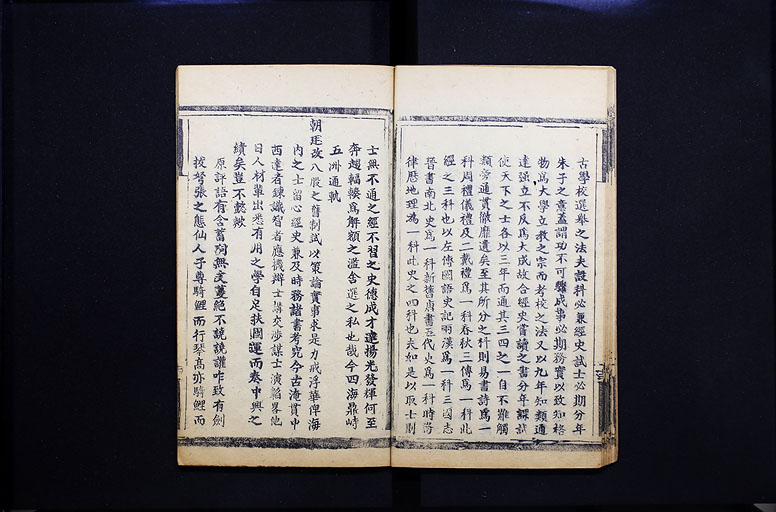 古學校選舉之法夫設科必兼經史試士必期分年
朱子之意蓋謂功不可驟成事必期務實以致知格
物為大學立教之宗而考校之法又以九年知類通
達强立不反為大成故合經史當讀之書分年課試
使天下之士各以三年而通其三四之一自不難觸
類旁通貫徹靡遺矣至其所分之科則易書詩為一
科周禮儀禮及二戴禮為一科春秋三傳為一科此
經之三科也以左傳國語史記兩漢為一科三國志
晉書南北史為一科新舊唐書五代史為一科時務
律歷地理為一科此史之四科也夫如是以取士則
士無不通之經不習之史德成才達揚光發輝何至
奔趨輻輳為解額之濫舍選之私也哉今四海鼎峙
五洲通軌
朝廷改八股之舊制試以策論實事求是力戒浮華俾海
內之士留心經史兼及時務諸書考究今古淹貫中
西達者鍊識智者應機辯士講交涉謀士演韜畧他
日人材輩出悉有用之學自足扶國運而奏中興之
績矣豈不懿歟
原評語有含蓄詞無支蔓絕不譊譊讙咋致有劍
拔弩張之態仙人子尊騎鯉而行琴高亦騎鯉而